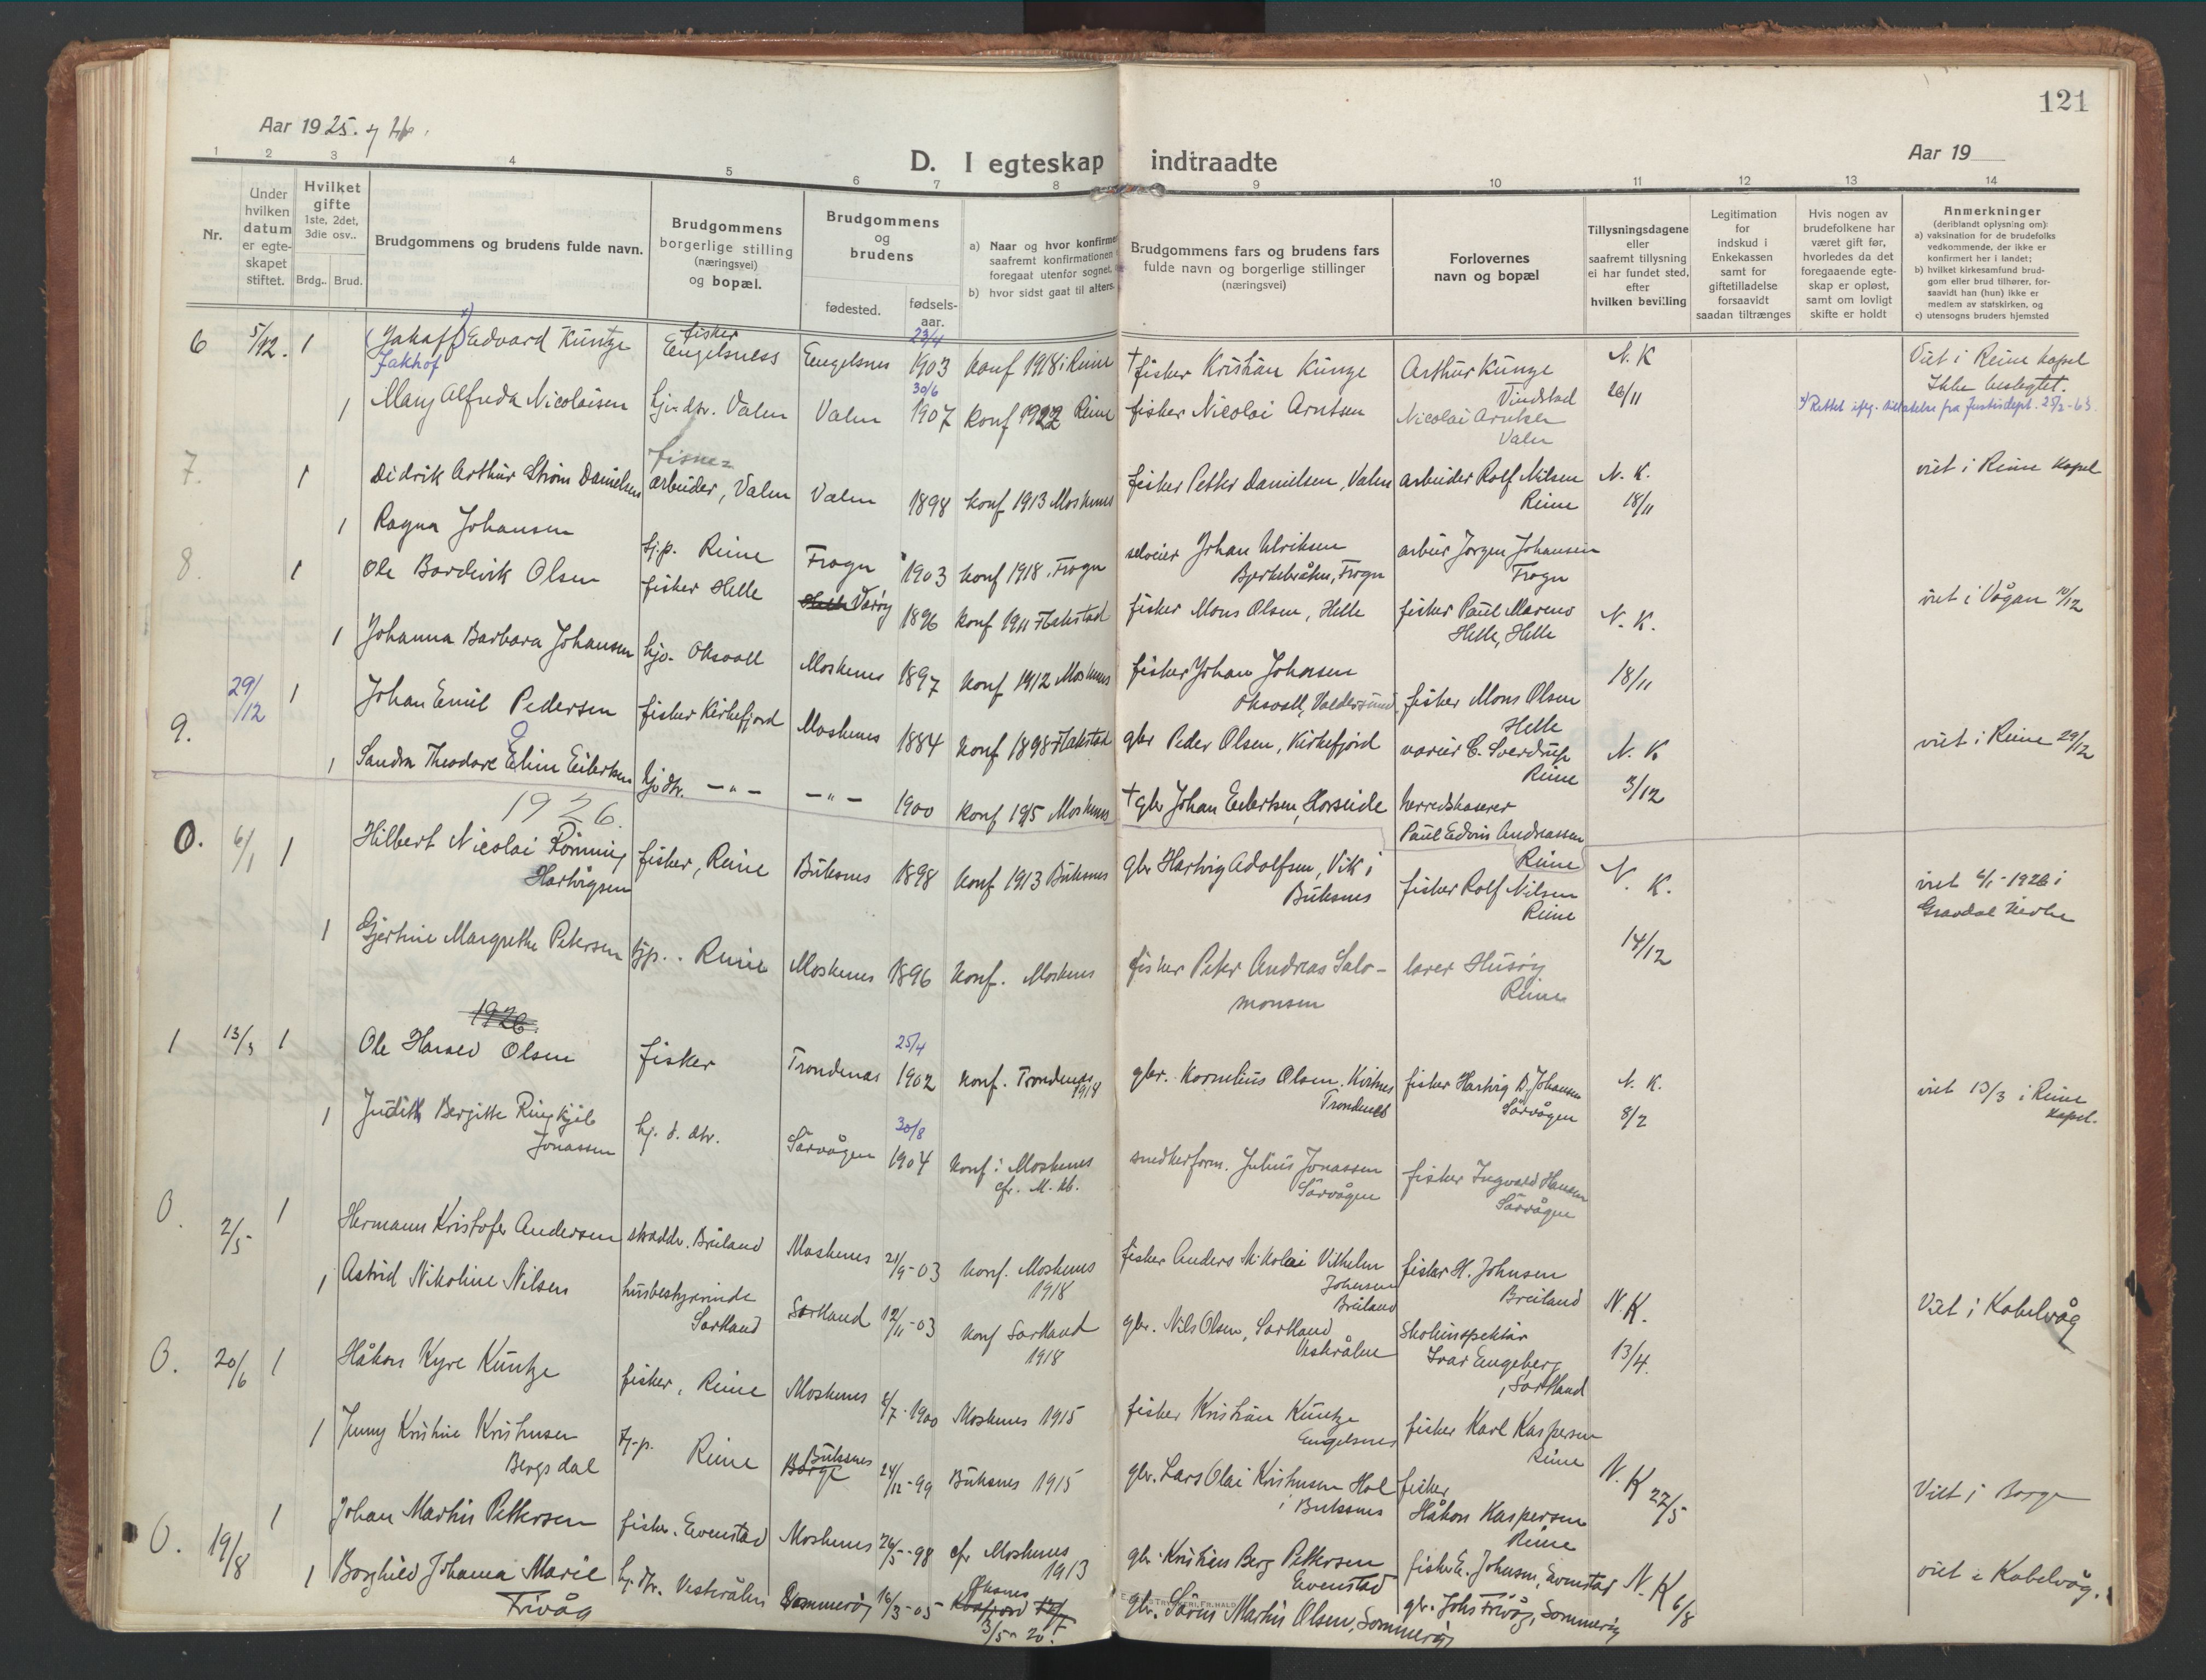 121
Aar 1925. og 26.
D. I egteskap indtraadte
Aar 19
1 2 3 4 5 6 7 8 9 10 11 12 13 14
Nr.
Under hvilken datum er egteskapet stiftet.
Hvilket gifte
1ste, 2det, 3die osv..
Brdg.. Brud.
Brudgommens og brudens fulde navn.
Brudgommens borgerlige stilling (næringsvei) og bopæl.
Brudgommens og brudens
fødested.
fødsels-aar.
a) Naar og hvor konfirme
saafremt konfirmationen
foregaat utenfor sognet,
b) hvor sidst gaat til alters.
Brudgommens fars og brudens fars
fulde navn og borgerlige stillinger
(næringsvei)
Forlovernes
navn og bopæl
Tillysningsdagene
eller
saafremt tillysning
ei har fundet sted,
efter
hvilken bevilling
Legitimation
for
indskud i
Enkekassen
samt for
giftetilladelse
forsaavidt
saadan tiltrænges
Hvis nogen av
brudefolkene har
været gift før,
hvorledes da det
foregaaende egte-
skap er opløst,
samt om lovligt
skifte er holdt
Anmerkninger
(deriblandt oplysning om):
a) vaksination for de brudefolks
vedkommende, der ikke er
konfirmert her i landet;
b) hvilket kirkesamfund brud-
gom eller brud tilhører, for-
saavidt han (hun) ikke er
medlem av statskirken, og
c) utensogns bruders hjemsted
6 5/12. 1 (Jakoff) Edvard Kuntze fisker Engelsness Engelsnes 23/4 1903 konf 1918 i Reine † fisker Kristian Kunze Arthur Kunze Vindstad N. K 26/11 Viet i Reine kapel
Jakhof
Ikke beslegtet.
1 Mary Alfreda Nicolaisen hj.dtr. Valen Valen 30/6 1907 konf 1922 Reine fisker Nicolai Arntsen Nicolai Arntsen Valen
x) Rettet iflg. tillatelse fra Justisdept. 25/2-63.
7. 1 Didrik Arthur Strøm Danielsen fisker arbeider, Valen Valen 1898 konf 1913 Moskenes fisker Petter Danielsen, Valen arbeider Rolf Nilsen Reine N. K. 18/11 viet i Reine kapel
1 Ragna Johansen tj.p. Reine Frogn 1903 konf 1918. Frogn selveier Johan Ulriksen Bjerkebråten, Frogn arbeir Jørgen Johansen Frogn
8. 1 Ole Bardevik Olsen fisker Helle Helle Værøy 1896 konf 1911 Flakstad fisker Mons Olsen, Helle fisker Paul Mareno Helle, Helle N. K. 18/11 viet i Vågan 10/12
1 Johanna Barbara Johansen hjv. Oksvoll Moskenes 1897 konf 1912 Moskenes fisker Johan Johansen Oksvoll, Valdersund. fisker Mons Olsen Helle
9. 29/12 1 Johan Emil Pedersen fisker Kirkefjord Moskenes 1884 konf 1898 Flakstad gbr Peder Olsen, Kirkefjord vareier C. Sverdrup Reine N. K. 3/12 viet i Reine 29/12
1 Sandra Theodore Eline Eilertsen hj.dtr. — " — — " — 1900 konf 1915 Moskenes † gbr Johan Eilertsen, Horseide herredskaserer Paul Edvin Andreassen Reine
1926.
0. 6/1 1 Hilbert Nicolai Rønning Hartvigsen fisker, Reine Buksnes 1898 konf 1913 Buksnes gbr Hartvig Adolfsen, Vik i Buksnes fisker Rolf Nilsen Reine N. K. 14/12 viet 6/1-1926 i Gravdal kirke
1 Gjertine Margrethe Petersen tjp. Reine Moskenes 1896 konf. Moskenes fisker Peter Andreas Salomonsen lærer Husøy Reine
1926.
1 13/3 1 Ole Harald Olsen fisker Trondenes 25/4 1902 konf. Trondenes 1918 gbr. Kornelius Olsen. Kvitnes Trondenes fisker Hartvig D. Johansen Sørvågen N. K. 8/2 viet 13/3 i Reine kapel.
1 Judith Bergitte Ringkjøb Jonassen hj. d. dtr. Sørvågen 30/8 1904 konf i Moskenes cfr. M. kb. snedkerform. Julius Jonassen Sørvågen fisker Ingvald Hansen Sørvågen
0. 2/5 1 Hermann Kristofer Andersen skrædder. Breiland Moskenes 21/9-03 konf. Moskenes 1918 fisker Anders Nikolai Vilhelm Johnsen Breiland fisker H. Johnsen Breiland N. K. 13/4. Viet i Kabelvåg
1 Astrid Nikoline Nilsen husbestyrerinde Sortland Sortland 12/11-03 konf Sortland 1918 gbr. Nils Olsen, Sortland Vesterålen Skoleinspektør Ivar Engeberg, Sortland
0. 20/6 1 Håkon Kyre Kuntze fisker, Reine Moskenes 8/7-1900 Moskenes 1915 fisker Kristian Kuntze Engelsnes fisker Karl Kaspersen Reine N. K 27/5 Viet i Borge
1 Jenny Kristine Kristensen Bergsdal tj.p. Reine Borge Buksnes 24/12-99 Buksnes 1915 gbr. Lars Olai Kristensen Hol i Buksnes fisker Håkon Kaspersen Reine
0. 19/8 1 Johan Martin Pettersen fisker. Evenstad Moskenes 26/5-98 cfr Moskenes 1913 gbr. Kristian Berg Pettersen Evenstad fisker E. Johnsen, Evenstad N. K 6/8 viet i Kabelvåg.
1 Borghild Johanna Marie Frivåg hj. dtr. Vesterålen Sommerøy 16/3-05 Øksnes 3/5-20. gbr. Søren Martin Olsen, Sommerøy gbr. Johs Frivåg, Sommerøy